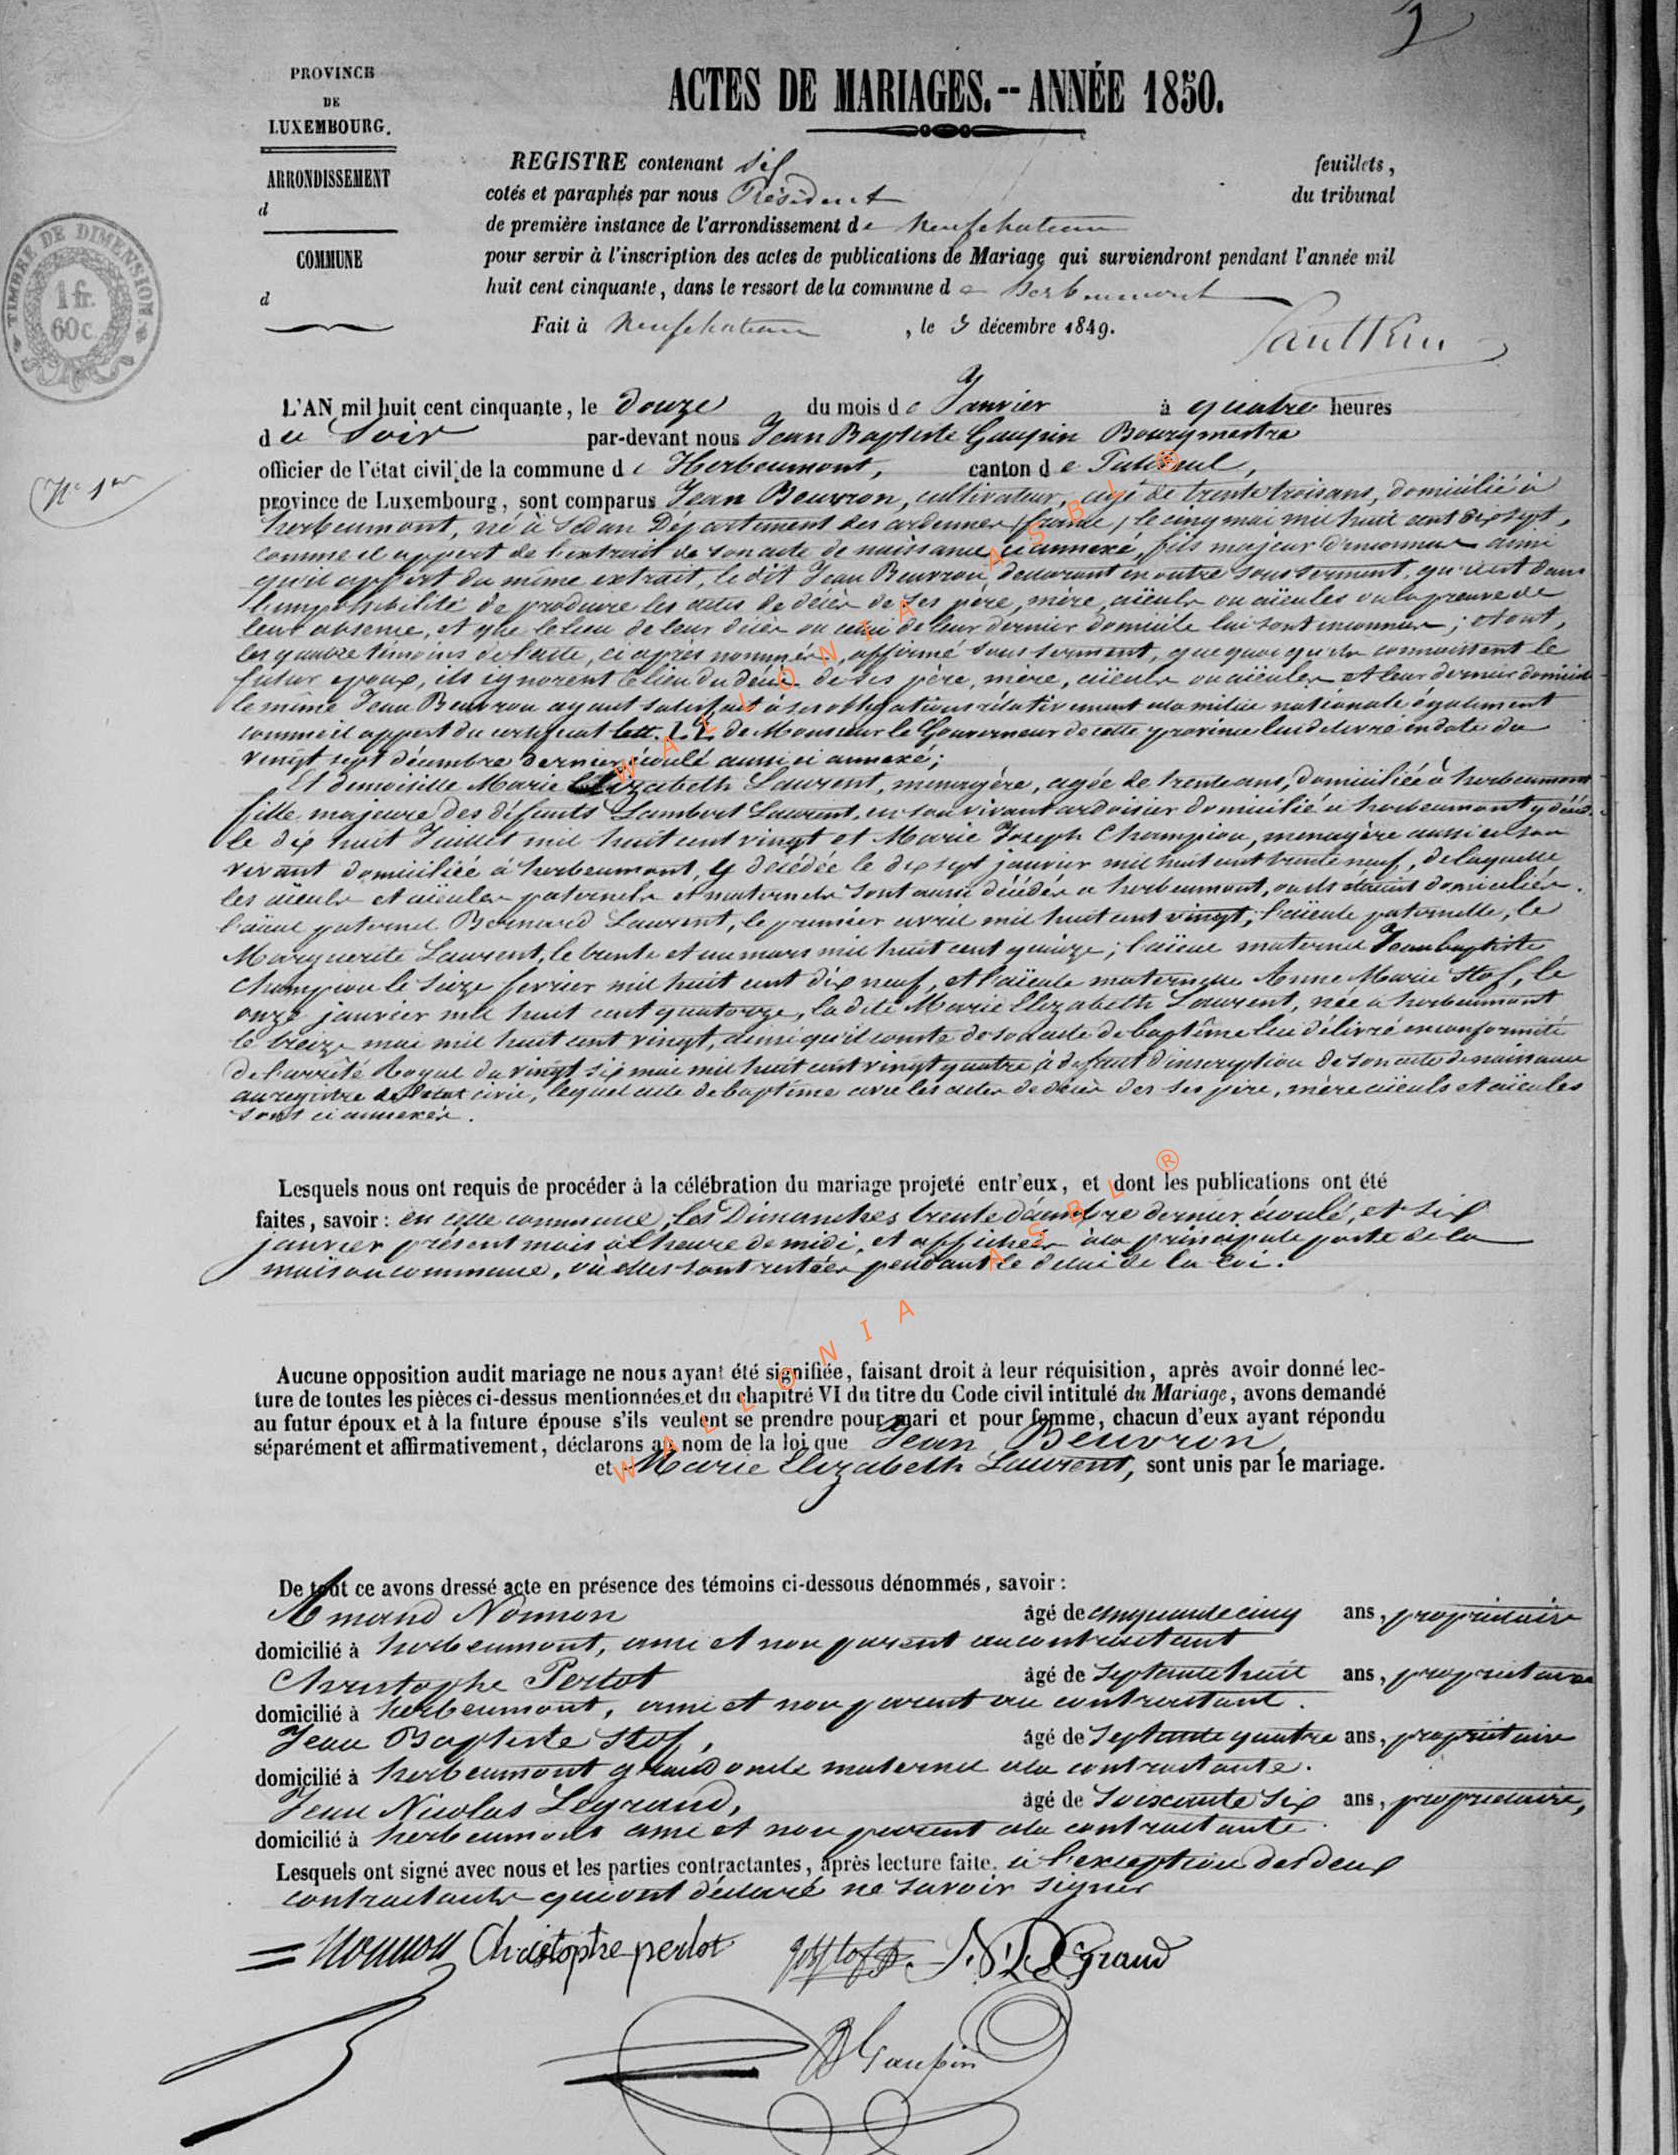 1
PROVINCE
DE
LUXEMBOURG.
ARRONDISSEMENT
d
COMMUNE
d
TIMBRE DE DIMENSION
1 fr.
60 c.
ACTES DE MARIAGES.-- ANNÉE 1850.
REGISTRE contenant six feuillets,
cotés et paraphés par nous Président du tribunal
de première instance de l'arrondissement de Neufchateau
pour servir à l'inscription des actes de publications de Mariage qui surviendront pendant l'année mil
huit cent cinquante, dans le ressort de la commune de herbeumont
Fait à Neufchateau, le 3 décembre 1849.
N° 1er
L'AN mil huit cent cinquante, le douze du mois de Janvier à quatre heures
du Soir par-devant nous Jean Baptiste Gaupin Bourgmestre
officier de l'état civil de la commune de Herbeumont, canton de
province de Luxembourg, sont comparus Jean Beuvron, cultivateur, agé de trente trois ans, domicilié à
herbeumont, né à Sedan Département des ardennes (france) le cinq mai mil huit cent dix sept,
comme il appert de l'extrait de son acte de naissance ci annexé, fils majeur d'inconnus ainsi
qu'il appert du même extrait, le dit Jean Beuvron, déclarant en outre sous serment, qu'il est dans
l'impossibilité de produire les actes de décès de ses père, mère, aïeuls ou aïeules ou la preuve de
leur absence, et que le lieu de leur décès ou celui de leur dernier domicile lui sont inconnus; et ont,
les quatre témoins de l'acte, ci après nommés, affirmé sous serment, que quoiqu'ils connaissent le
futur epoux, ils ignorent le lieu du décès de ses père, mère, aïeuls ou aïeules et leur dernier domicile
le même Jean Beuvron ayant satisfait à ses obligations rélativement à la milice nationale également
comme il appert du certificat lett. de Monsieur le Gouverneur de cette province lui délivré en date du
vingt sept décembre dernier écoulé aussi ci annexé;
Et demoiselle Marie Elizabeth Laurent, menagère, agée de trente ans, domiciliée à herbeumont
fille majeure des défunts Lambert Laurent, en son vivant ardoisier domicilié à herbeumont y décédé
le dix huit Juillet mil huit cent vingt et Marie Joseph Champion, menagère aussi en son
vivant domiciliée à herbeumont, y décédée le dix sept janvier mil huit cent trente neuf, de laquelle
les aïeuls et aïeules paternels et maternels sont aussi décédés à herbeumont, ou ils étaient domiciliés.
l'aïeul paternel Bernard Laurent, le premier avril mil huit cent vingt; l'aïeule paternelle, le
Marguerite Laurent, le trente et un mars mil huit cent quinze; l'aïeul maternel Jean baptiste
Champion le seize fevrier mil huit cent dix neuf, et l'aïeule maternelle Anne Marie Stof, le
onze janvier mil huit cent quatorze, la dite Marie Elizabeth Laurent, née à herbeumont
le treize mai mil huit cent vingt, ainsi qu'il conste de son acte de baptême lui délivré en conformité
de l'arrêté Royal du vingt six mai mil huit cent vingt quatre à defaut d'inscription de son acte de naissance
au registre de l'état civil, lequel acte de baptême avec les actes de décès des ses père, mère aïeuls et aïeules
sont ci annexés.
Lesquels nous ont requis de procéder à la célébration du mariage projeté entr'eux, et dont les publications ont été
faites, savoir: en cette commune, les Dimanches trente décembre dernier écoulé, et six
janvier présent mois à l'heure de midi, et affichées à la principale porte de la
maison commune, où elles sont restées pendant le delai de la loi.
Aucune opposition audit mariage ne nous ayant été signifiée, faisant droit à leur réquisition, après avoir donné lec-
ture de toutes les pièces ci-dessus mentionnées et du chapitré VI du titre du Code civil intitulé du Mariage, avons demandé
au futur époux et à la future épouse s'ils veulent se prendre pour mari et pour femme, chacun d'eux ayant répondu
séparément et affirmativement, déclarons au nom de la loi que Jean Beuvron,
et Marie Elizabeth Laurent, sont unis par le mariage.
De tout ce avons dressé acte en présence des témoins ci-dessous dénommés, savoir:
Amand Nonnon âgé de cinquante cinq ans, propriétaire
domicilié à herbeumont, ami et non parent au contractant
Christophe Perlot âgé de Septante huit ans, propriétaire
domicilié à herbeumont, ami et non parent au contractant.
Jean Baptiste Stof, âgé de Septante quatre ans, propriétaire
domicilié à herbeumont grand oncle maternel à la contractante.
Jean Nicolas Legrand, âgé de Soixante six ans, propriétaire,
domicilié à herbeumont ami et non parent à la contractante.
Lesquels ont signé avec nous et les parties contractantes, après lecture faite. à l'exception des deux
contractants qui ont déclaré ne savoir signer
Nonnon Christophe perlot JBStof JN LeGrand
JBGaupin
WALLONIA ASBL ®
WALLONIA ASBL ®